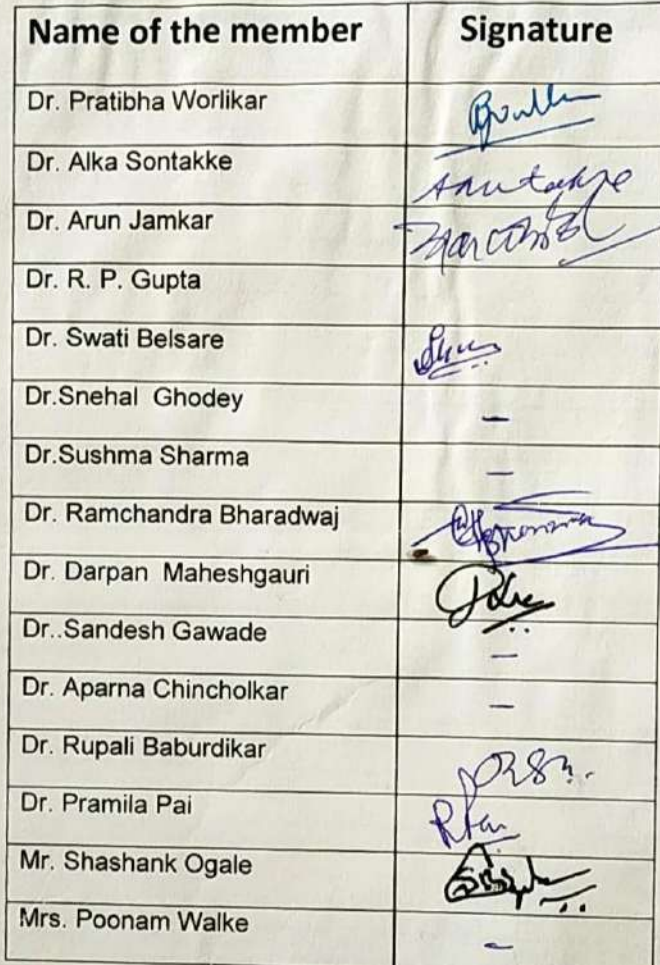 Name of the member Signature
Dr. Pratibha Worlikar
Dr. Alka Sontakke
Dr. Arun Jamkar
Dr. R. P. Gupta
Dr. Swati Belsare
Dr.Snehal Ghodey –
Dr.Sushma Sharma –
Dr. Ramchandra Bharadwaj
Dr. Darpan Maheshgauri
Dr..Sandesh Gawade –
Dr. Aparna Chincholkar –
Dr. Rupali Baburdikar
Dr. Pramila Pai RPai
Mr. Shashank Ogale
Mrs. Poonam Walke –